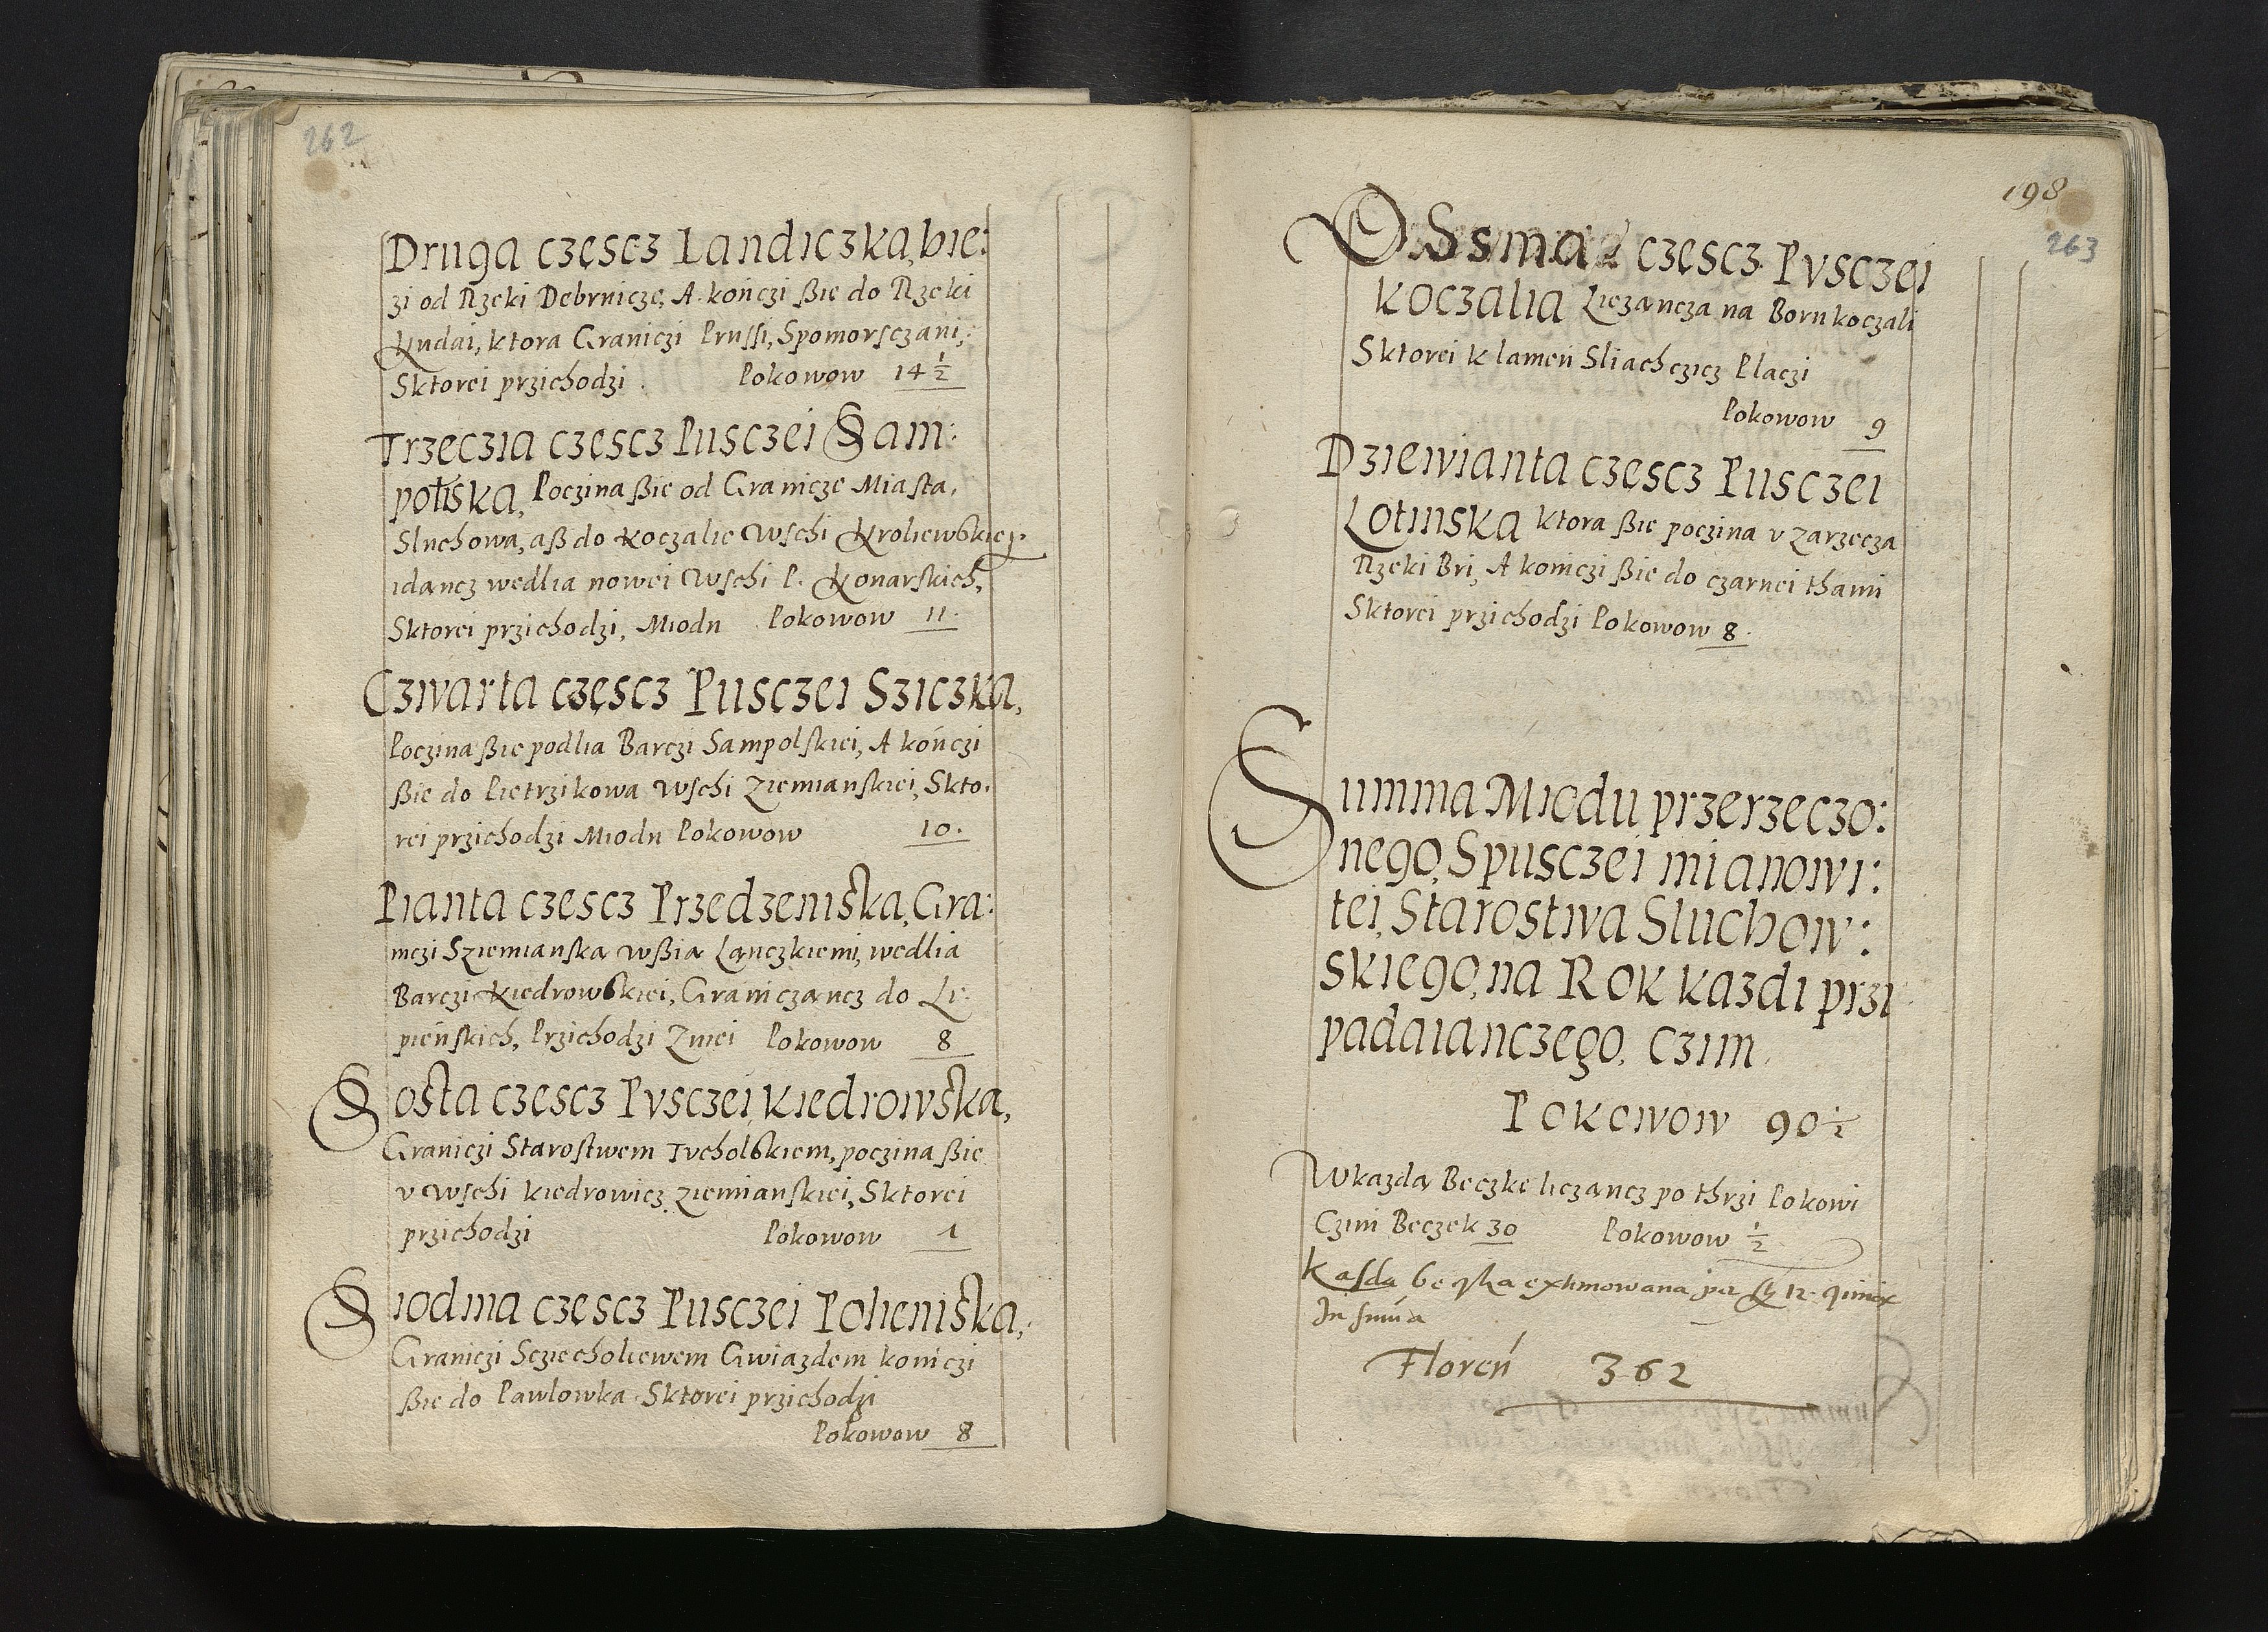 262
Druga częscz Landiczka, bie:
zi od Rzeki Debrnicze, A kończi ßie do Rzeki
Kudai, ktora Graniczi Prussi, Spomorsczani,
Sktorei przichodzi . Pokowow 14 1/2
Trzeczia częscz Pusczei Sam:
polska, Poczina ßie od Granicze Miasta,
Sluchowa, aß do Koczalie Wschi Kroliewskiei,
idancz wedlia nowei Wschi P. Konarskich,
Sktorei przichodzi, Miodu Pokowow 11.
Czwarta częscz Pusczei Sziczka,
Poczina ßie podlia Barczi Sampolskiei, A kończi
ßie do Pietrzikowa Wschi Ziemianskiei, Skto,
rei przichodzi Miodu Pokowow 10.
Pianta częscz Przedzeniska, Gra:
niczi Sziemianska wßia Lanczkiemi, wedlia
Barczi Kiedrowskiei, Graniczancz do Li:
pieńskich, Przichodzi Zniei Pokowow 8
Sosta częscz Pvsczei, Kiedrowska,
Graniczi Starostwem Tvcholskiem, poczina ßie
v Wschi Kiedrowicz ziemianskiei, Sktorei
przichodzi Pokowow 1
Siodma częscz Pusczei Polieniska,
Graniczi Scziecholiewem Gwiazdem kończi
ßie do Pawlowka Sktorei przichodzi
Pokowow 8
198
263
Ossma częscz Pvsczei
Koczalia Liezancza na Bornkoczali
Sktorei Klameń Sliachczicz Placzi
Pokowow 9
Dziewianta częscz Pusczei
Lotinska ktora ßie poczina v Zarzecza
Rzeki Bri, A kończi ßie do czarnei thami
Sktorei przichodzi Pokowow 8.
Summa Miodu przerzeczo:
nego, Spusczei mianowi:
tei, Starostwa Sluchow:
skiego, na Rok kazdi przi
padaianczego, czim
Pokowow 90 1/2
Wkazda Beczke liczancz po thrzi Pokowi
Czini Beczek 30 Pokowow 1/2
Kasda beczka extimowana per 12
In sum̄a
Floreń 362